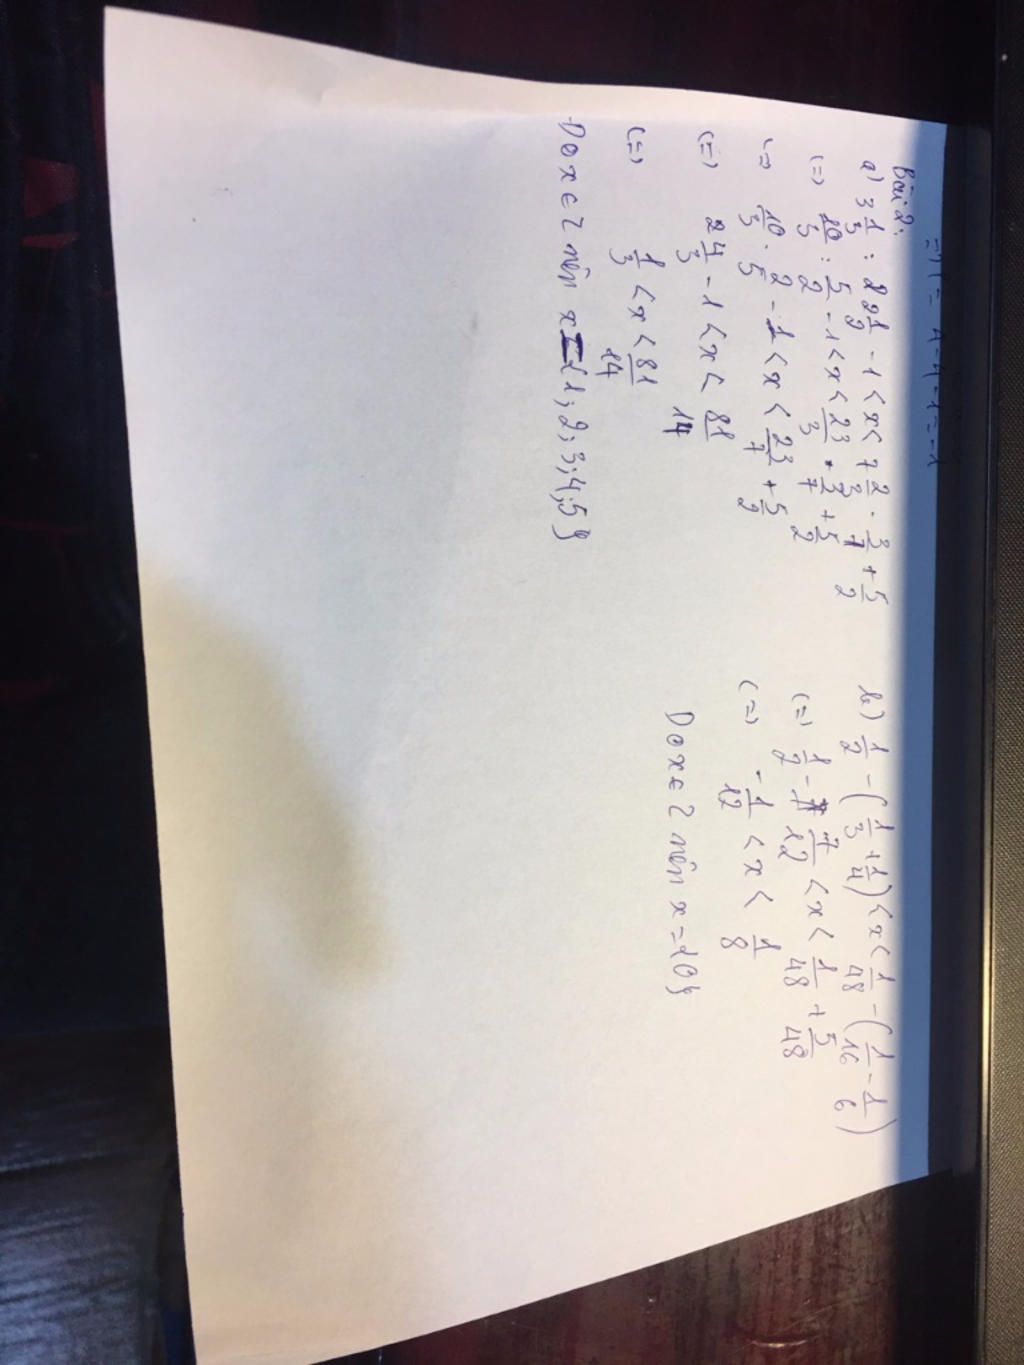 => x = 4-4-1=-1
Bài 2:
a) 3 1/3 : 2 1/2 - 1 < x < 7 2/3 . 3/7 + 5/2
(=) 10/3 : 5/2 - 1 < x < 23/3 . 3/7 + 5/2
(=) 10/3 . 2/5 - 1 < x < 23/7 + 5/2
(=) 4/3 - 1 < x < 81/14
(=) 1/3 < x < 81/14
Do x ∈ Z nên x = {1; 2; 3; 4; 5}
b) 1/2 - (1/3 + 1/4) < x < 1/48 - (1/16 - 1/6)
(=) 1/2 - 7/12 < x < 1/48 + 5/48
(=) -1/12 < x < 1/8
Do x ∈ Z nên x = {0}